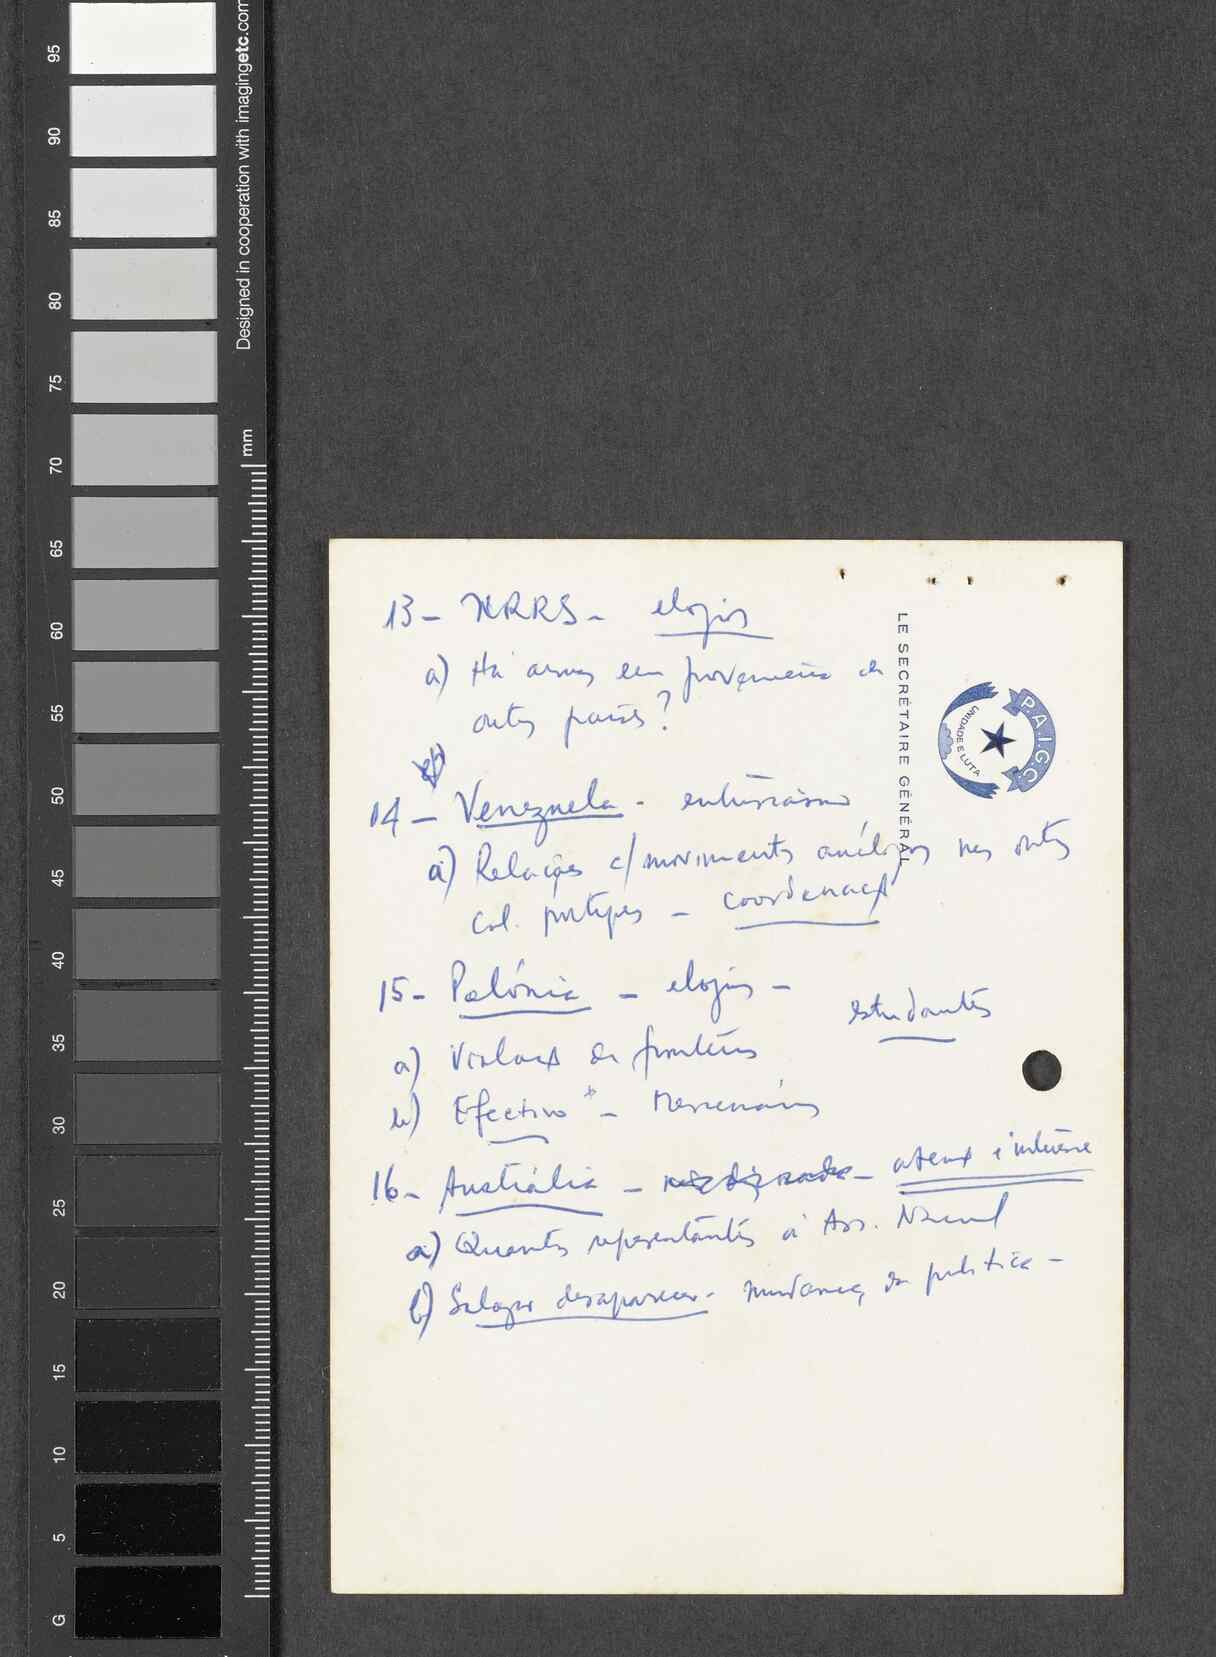 13 – URRS – elogios
a) Há armas em proveniência de
outros países?
14 – Venezuela – entusiasmo
a) Relações c/ movimentos análogos nas outras
col. portugues – coordenação
15 – Polónia – elogios –
estudantes
a) Violação de fronteiras
b) Efectivos – Mercenários
16 – Austrália – atenção e interesse
a) Quantos representantes à Ass. Nacional
b) Salazar desaparecer – mudança de política –
LE SECRÉTAIRE GÉNÉRAL
P.A.I.G.C.
UNIDADE E LUTA
Designed in cooperation with imagingetc.com
mm
95
90
85
80
75
70
65
60
55
50
45
40
35
30
25
20
15
10
5
G